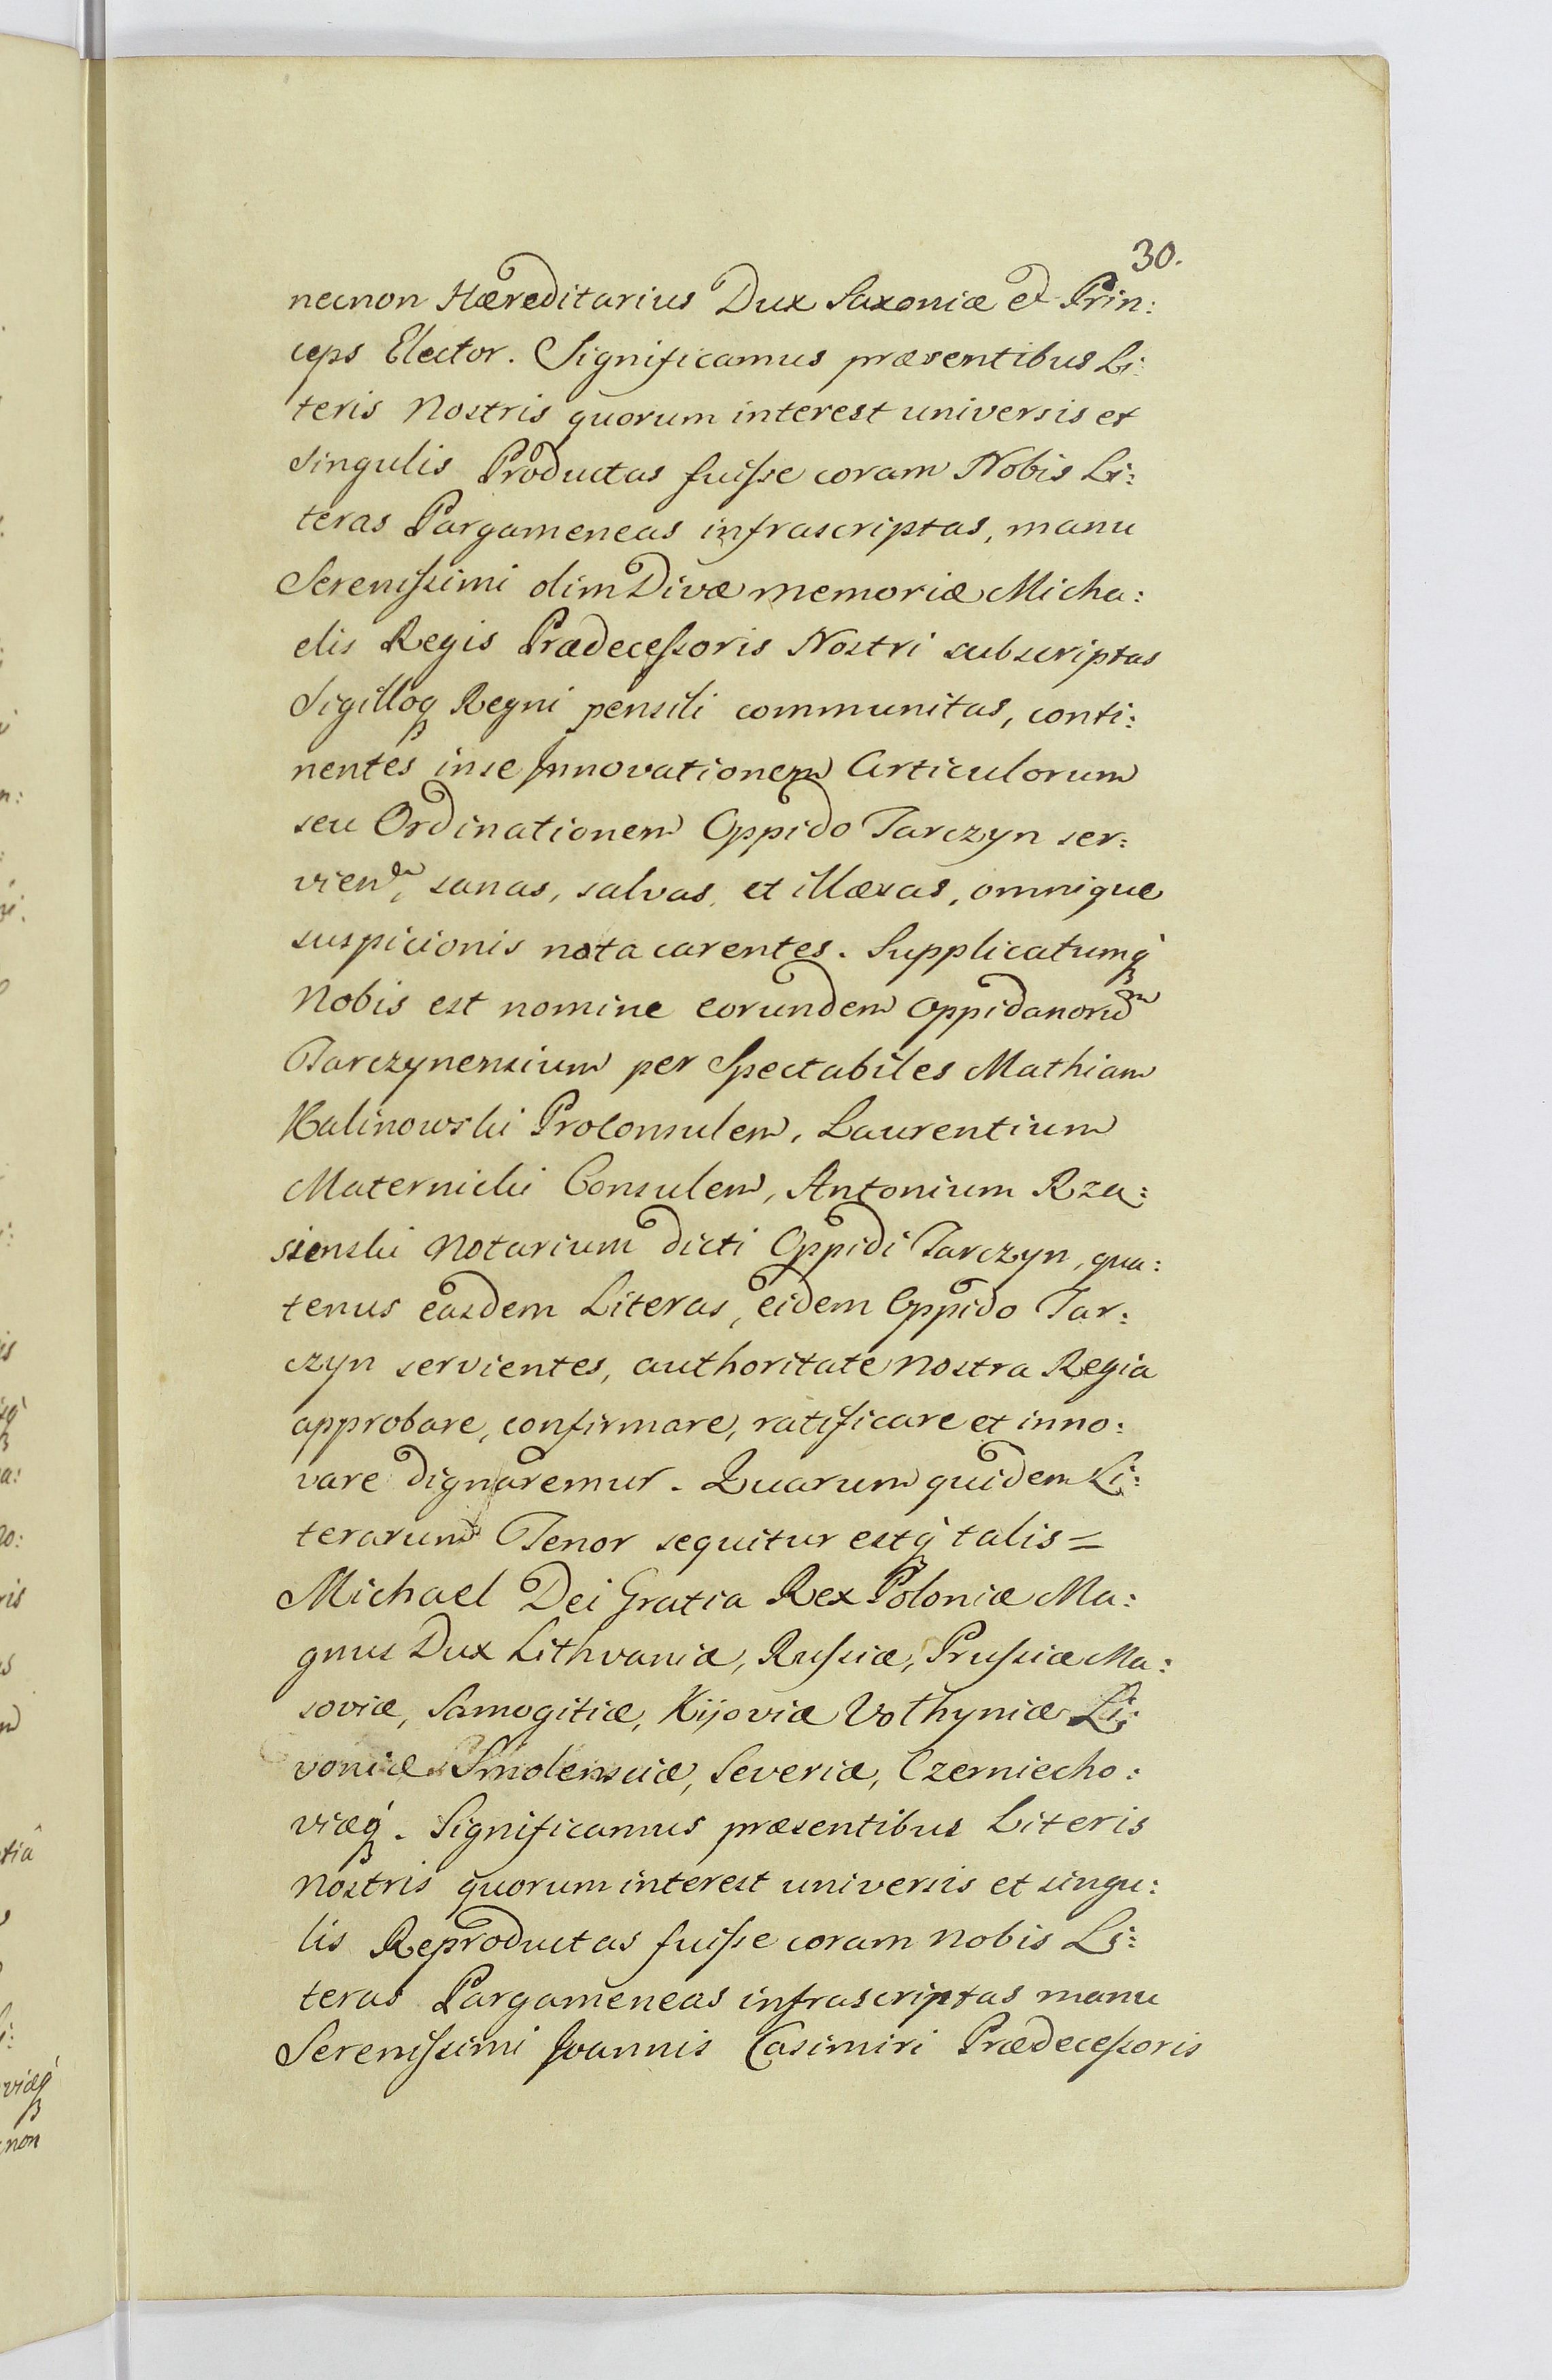 30.
necnon Hæreditarius Dux Saxoniæ et Prin:
ceps Elector. Significamus præsentibus Li:
teris Nostris quorum interest universis et
singulis Productas fuisse coram Nobis Li:
teras Pargameneas infrascriptas, manu
Serenissimi olim Divæ memoriæ Micha:
elis Regis Prædecessoris Nostri subscriptas
Sigilloq́ꝫ Regni pensili communitas, conti:
nentes in se Innovationem Articulorum
seu Ordinationem Oppido Tarczyn ser:
vien, sanas, salvas, et illæsas, omnique
suspicionis nota carentes. Supplicatumq́ꝫ
Nobis est nomine eorundem Oppidanorum
Tarczynensium per Spectabiles Mathiam
Kalinowski Proconsulem, Laurentium
Maternicki Consulem, Antonium Rza:
sienski Notarium dicti Oppidi Tarczyn, qua:
tenus easdem Literas, eidem Oppido Tar:
czyn servientes, authoritate nostra Regia
approbare, confirmare, ratificare et inno:
vare dignaremur. Quarum quidem Li:
terarum Tenor sequitur estq́ꝫ talis =
Michael Dei Gratia Rex Poloniæ Ma:
gnus Dux Lithvaniæ, Russiæ, Prussiæ Ma:
soviæ, Samogitiæ, Kijoviæ Volhyniæ Li:
voniæ Smolensciæ, Severiæ, Czerniecho:
viæq́ꝫ. Significamus præsentibus Literis
nostris quorum interest universis et singu:
lis Reproductas fuisse coram nobis Li:
teras Pargameneas infrascriptas manu
Serenissimi Joannis Casimiri Prædecessoris